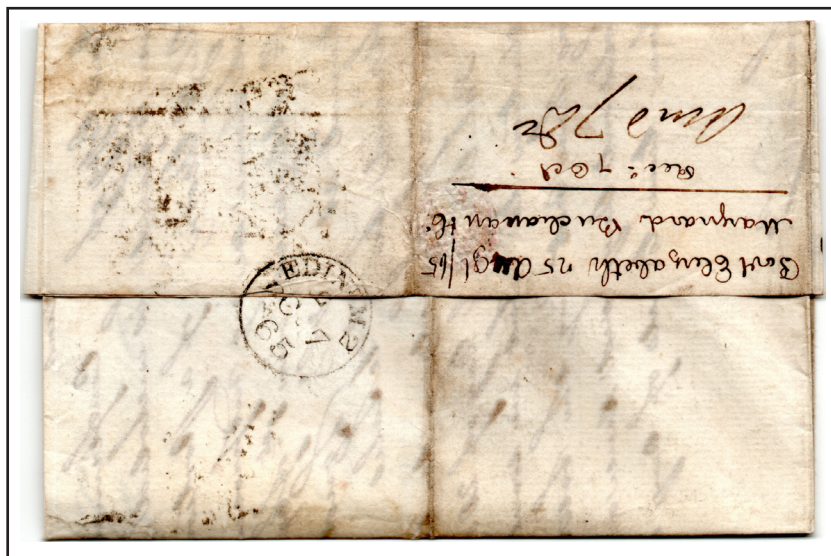 Port Elizabeth 25 Augt/65
Maynard Buchanan
Recd 7 Oct
Ansd 7
OC
7
65